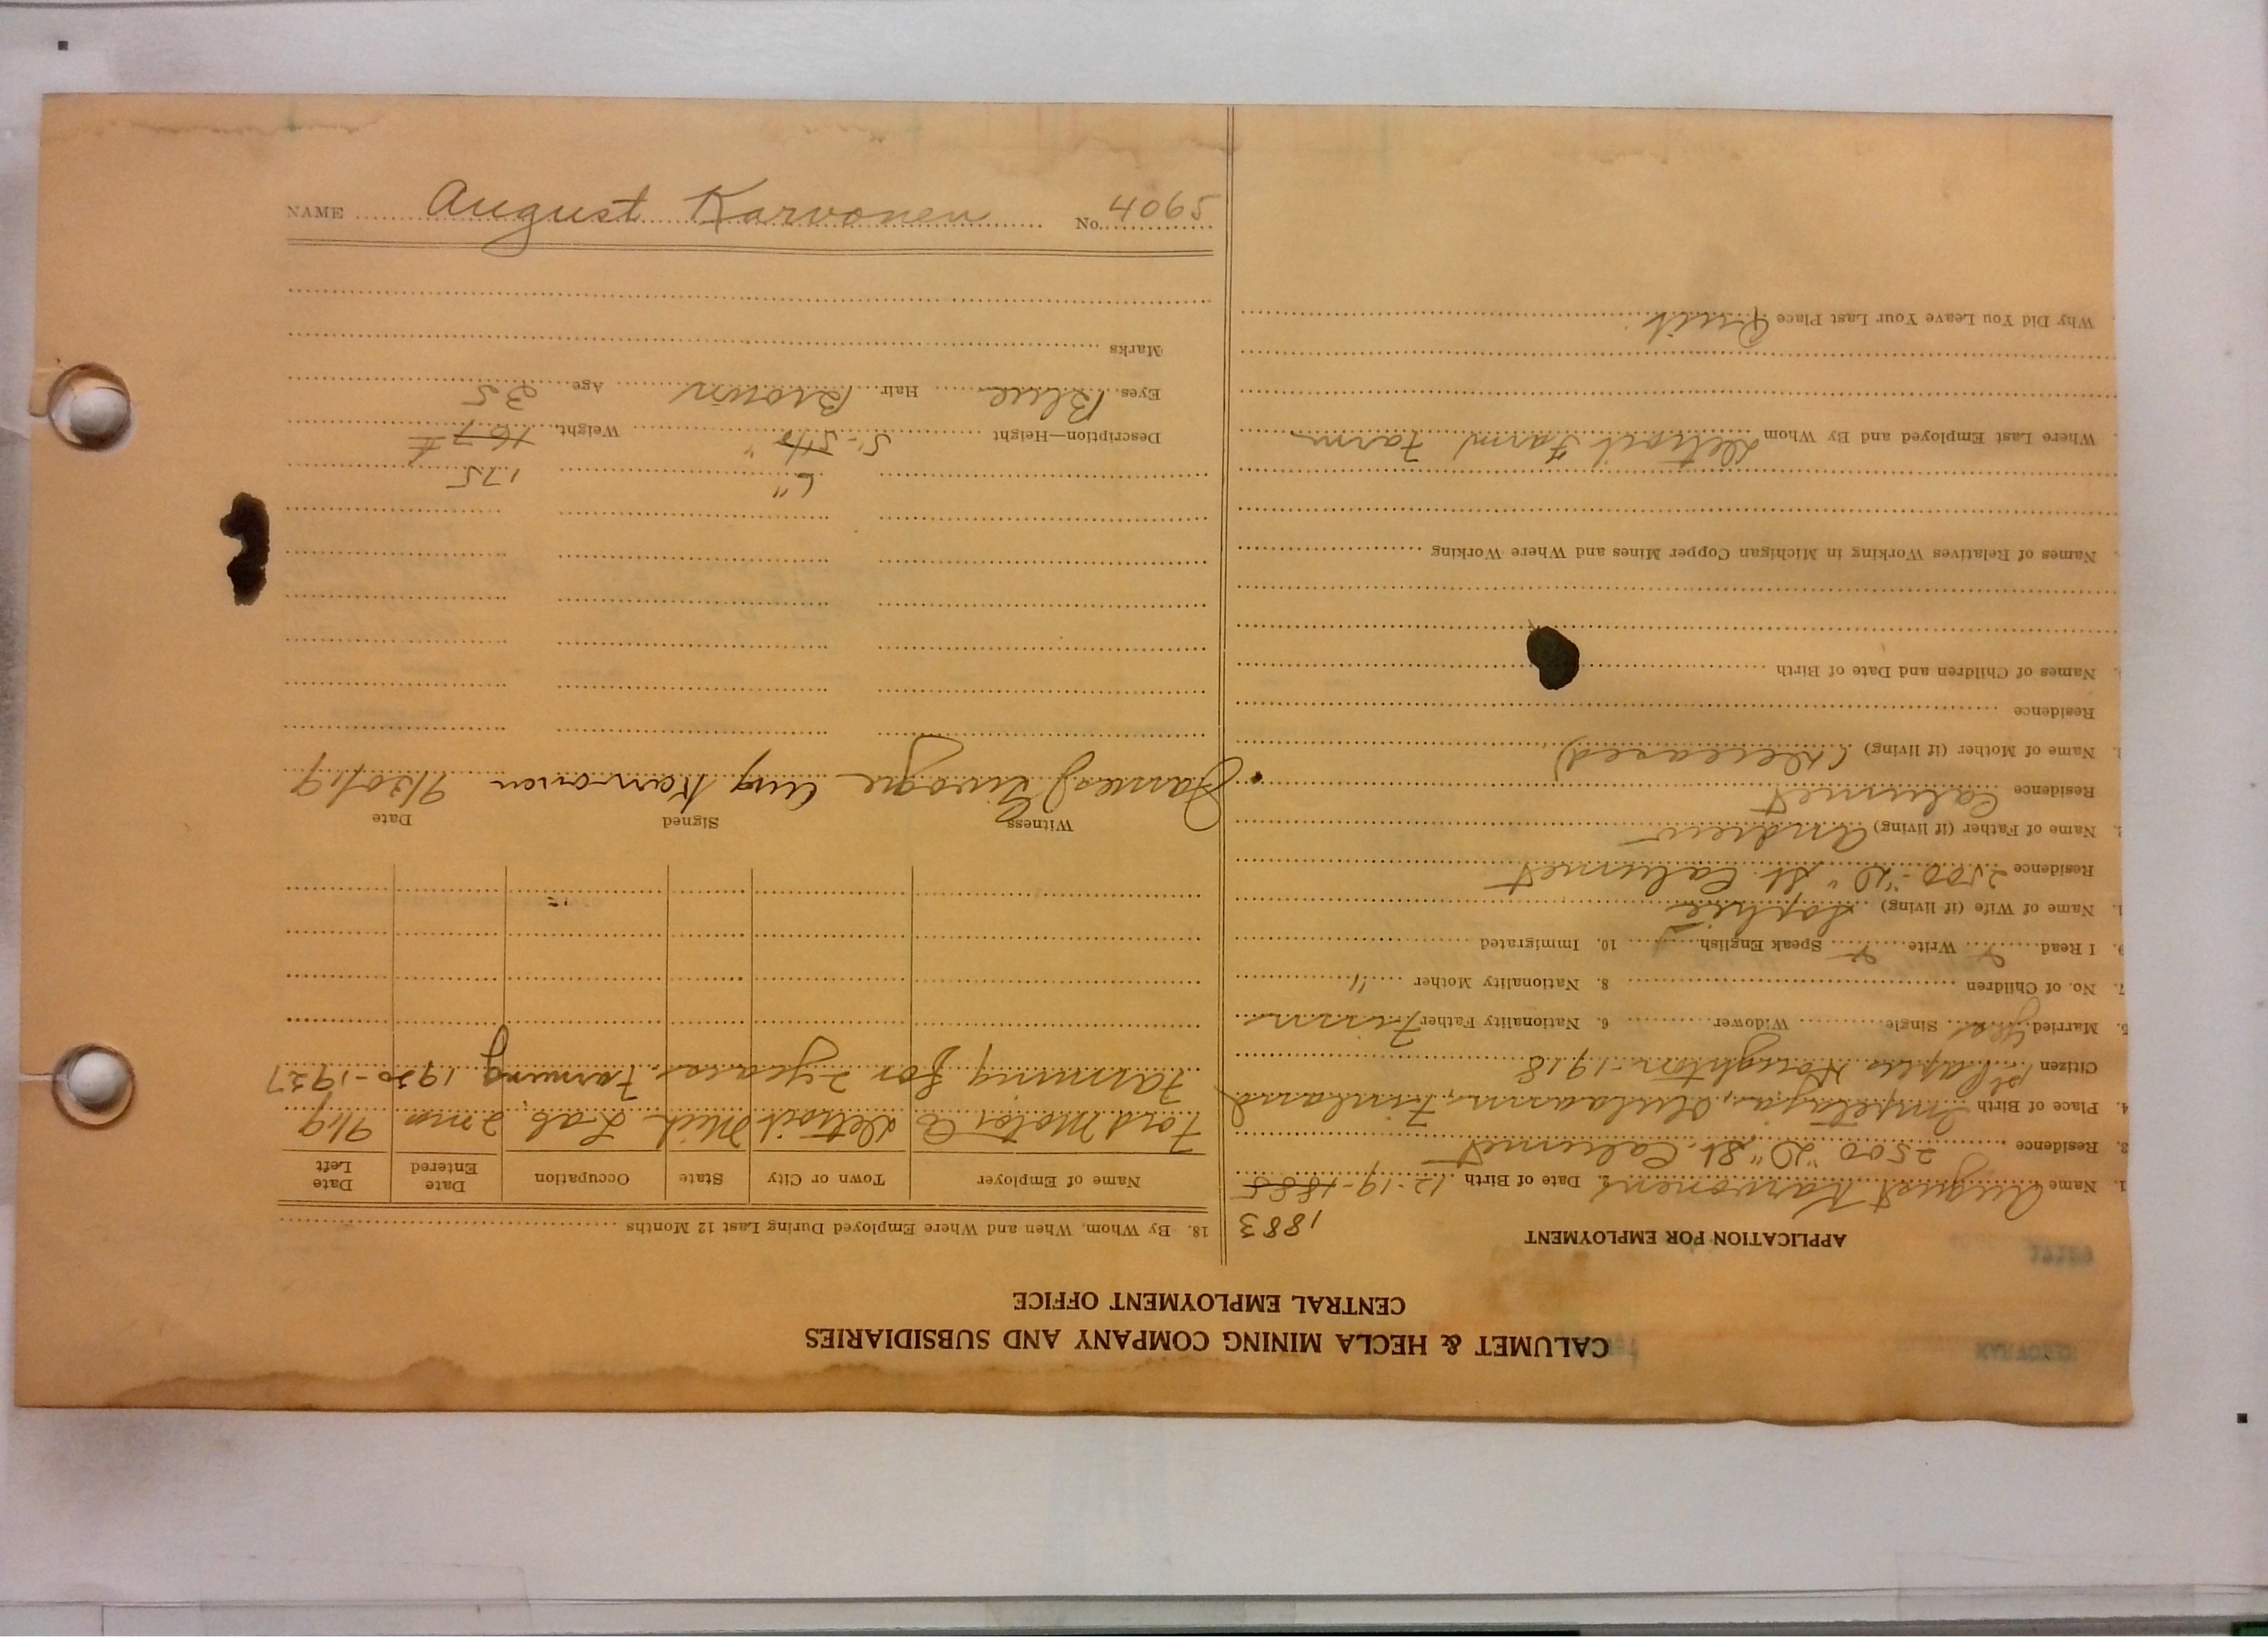 CALUMET & HECLA MINING COMPANY AND SUBSIDIARIES
CENTRAL EMPLOYMENT OFFICE
APPLICATION FOR EMPLOYMENT
1883
1. Name August Karvonen 2. Date of Birth 12-19-1885
3. Residence 2500 "D" St. Calumet
4. Place of Birth Finland
Citizen 1st Papers Houghton-1918
5. Married Yes Single Widower 6. Nationality Father Finn
7. No. of Children 8. Nationality Mother "
9. I Read Write Speak English 10. Immigrated
1. Name of Wife (if living) Sophia
Residence 2500-"D" St. Calumet
2. Name of Father (if living) Andrew
Residence Calumet
3. Name of Mother (if living) (Deceased)
Residence
Names of Children and Date of Birth
Names of Relatives Working in Michigan Copper Mines and Where Working
Where Last Employed and By Whom Detroit Farm Farm
Why Did You Leave Your Last Place Quit
18. By Whom, When and Where Employed During Last 12 Months
Name of Employer Town or City State Occupation Date Entered Date Left
Ford Motor Co Detroit Mich Lab. 2 mo 9/19
Farming for 2 years. Farming 1920-1927
Witness Signed Date
James Aug Karvonen 9/30/19
6" 175
Description—Height 5'-5½" Weight 167 #
Eyes Blue Hair Brown Age 35
Marks
NAME August Karvonen No. 4065